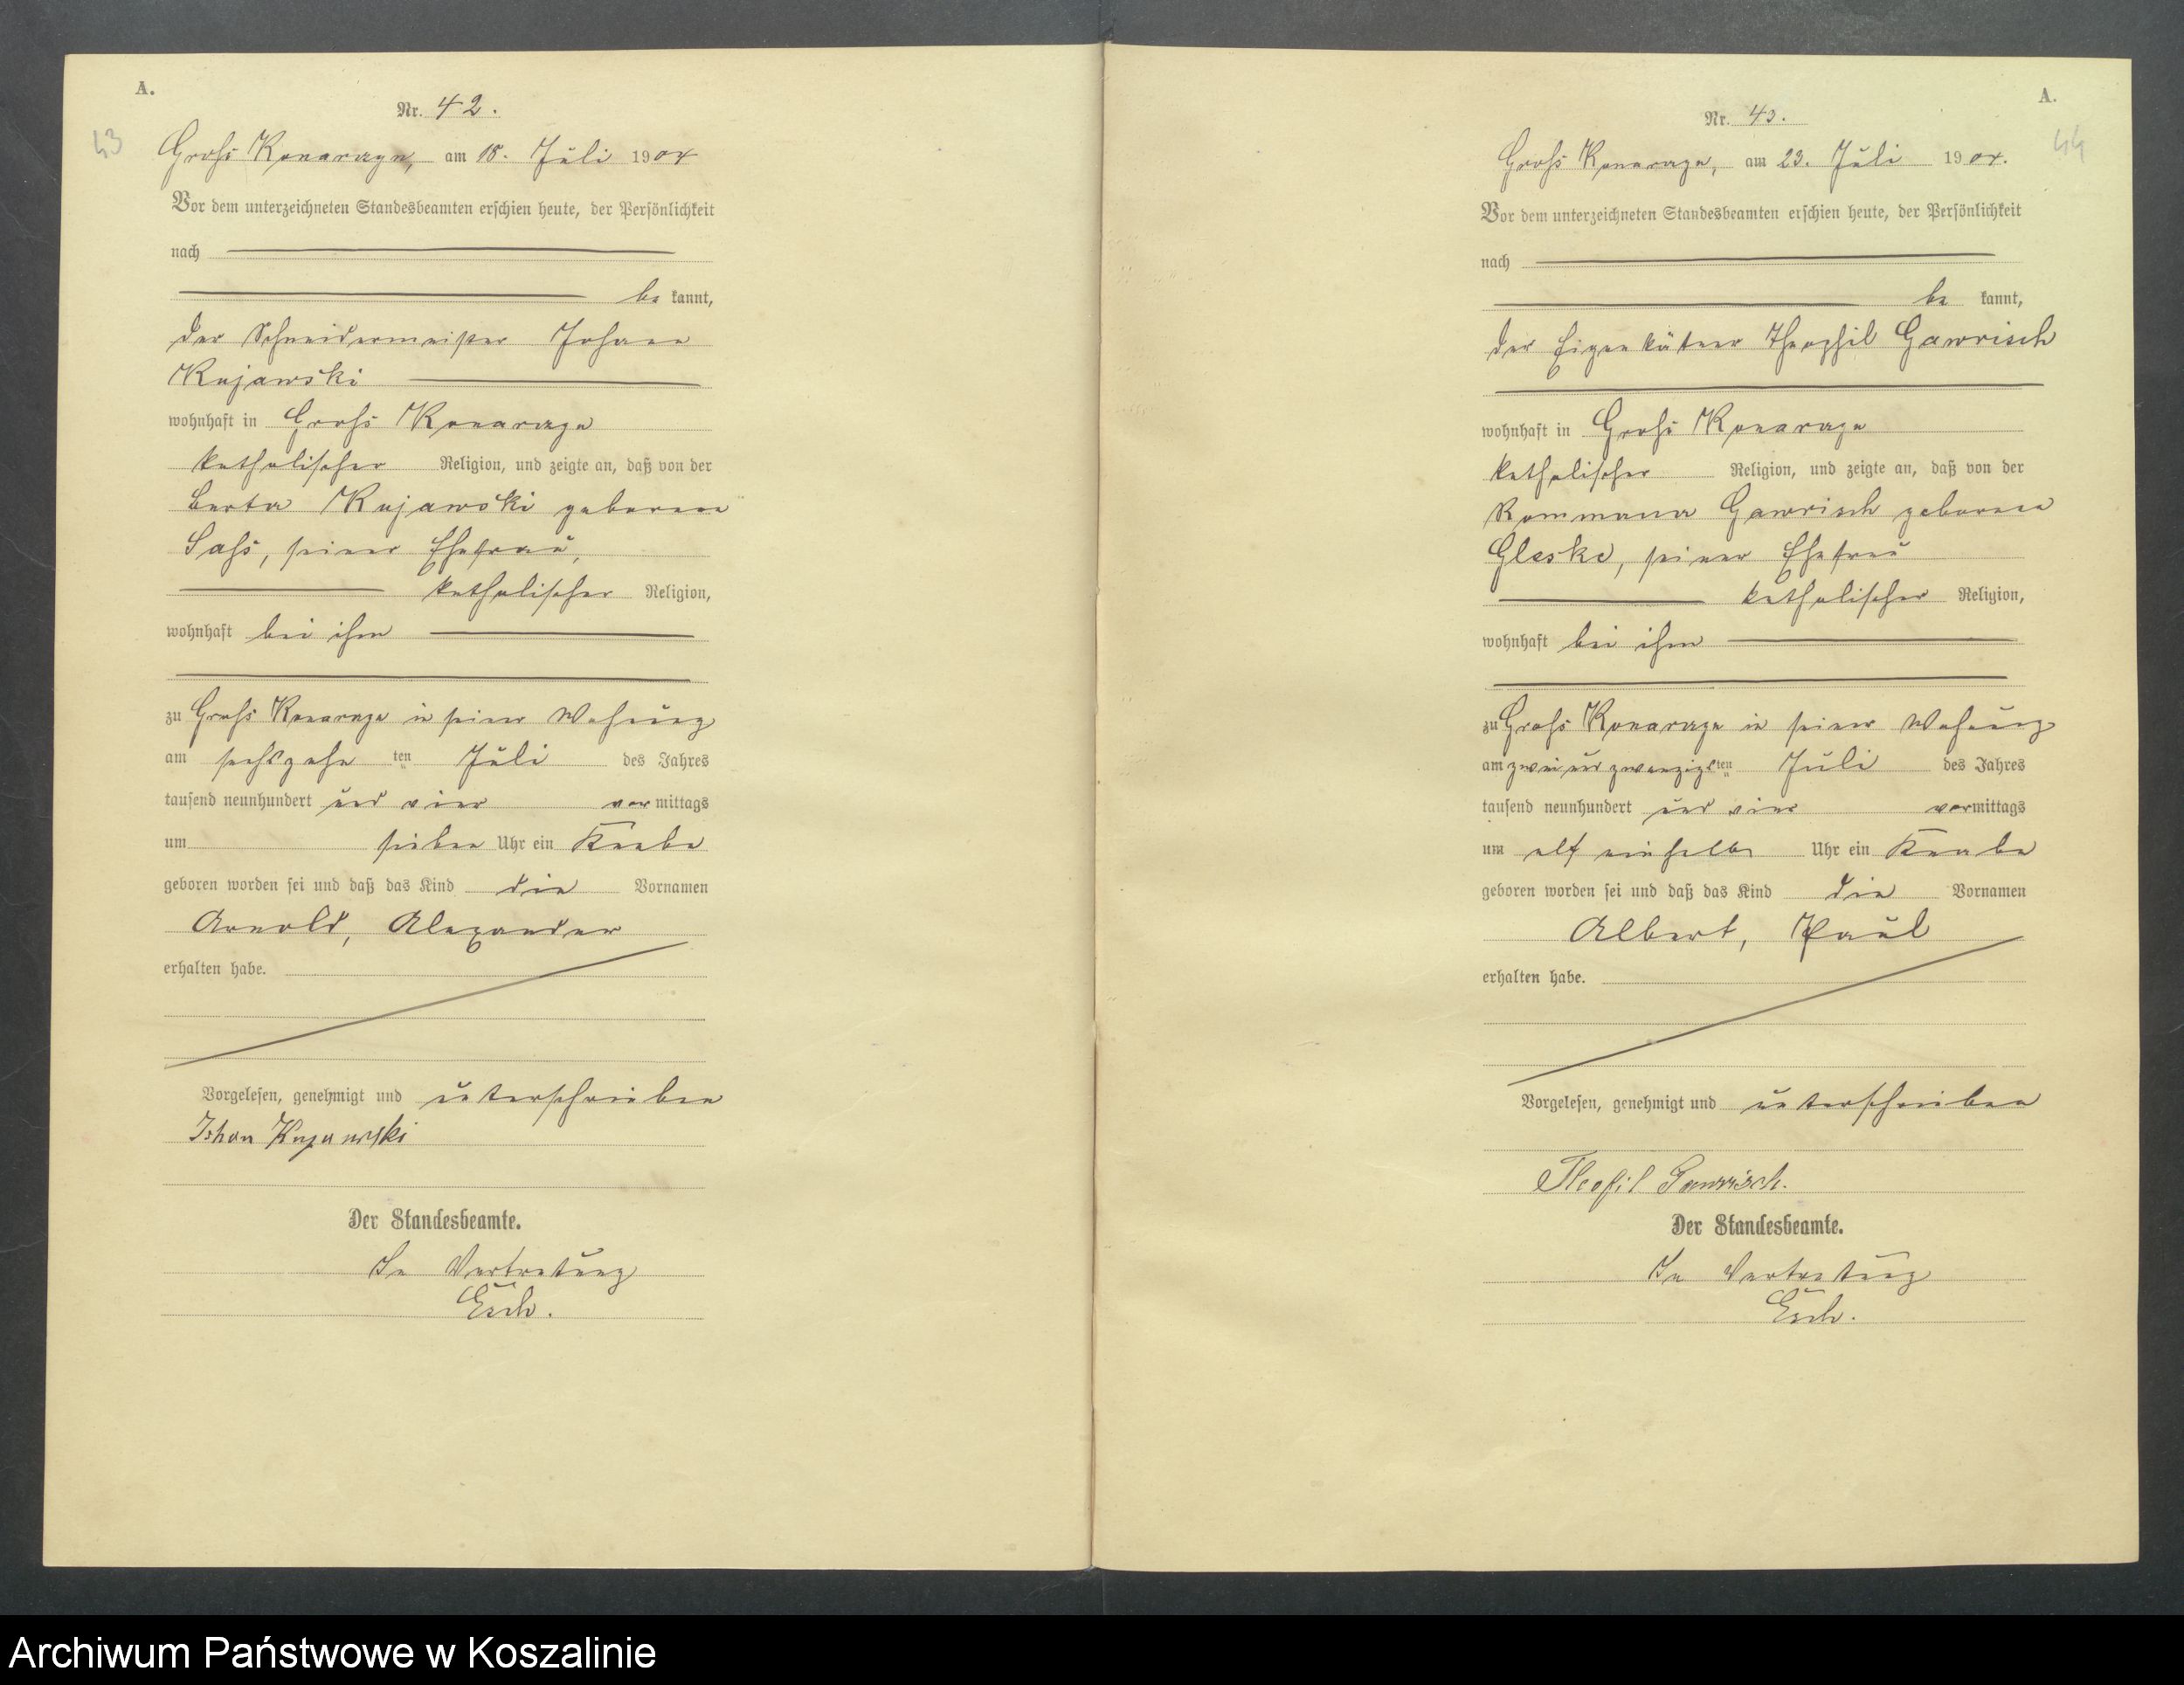 A.
43
Nr. 42.
Groß Konarczyn, am 18. Juli 1904
Vor dem unterzeichneten Standesbeamten erschien heute, der Persönlichkeit
nach
be kannt,
der Schneidermeister Johann
Kujawski
wohnhaft in Groß Konarczyn
katholischer Religion, und zeigte an, daß von der
Berta Kujawski geborene
Saß, seiner Ehefrau,
katholischer Religion,
wohnhaft bei ihm
zu Groß Konarczyn in seiner Wohnung
am sechszehn ten Juli des Jahres
tausend neunhundert und vier vormittags
um sieben Uhr ein Knabe
geboren worden sei und daß das Kind die Vornamen
Arnold, Alexander
erhalten habe.
Vorgelesen, genehmigt und unterschrieben
Johan Kujawski
Der Standesbeamte.
In Vertretung
Esch.
A.
44
Nr. 43.
Groß Konarczyn, am 23. Juli 1904.
Vor dem unterzeichneten Standesbeamten erschien heute, der Persönlichkeit
nach
be kannt,
der Eigenkätner Theophil Gawrisch
wohnhaft in Groß Konarczyn
katholischer Religion, und zeigte an, daß von der
Rommana Gawrisch geborene
Gleske, seiner Ehefrau
katholischer Religion,
wohnhaft bei ihm
zu Groß Konarczyn in seiner Wohnung
am zweiundzwanzigsten Juli des Jahres
tausend neunhundert und vier vormittags
um elf einhalb Uhr ein Knabe
geboren worden sei und daß das Kind die Vornamen
Albert, Paul
erhalten habe.
Vorgelesen, genehmigt und unterschrieben
Theofil Gawrisch.
Der Standesbeamte.
In Vertretung
Esch.
Archiwum Państwowe w Koszalinie